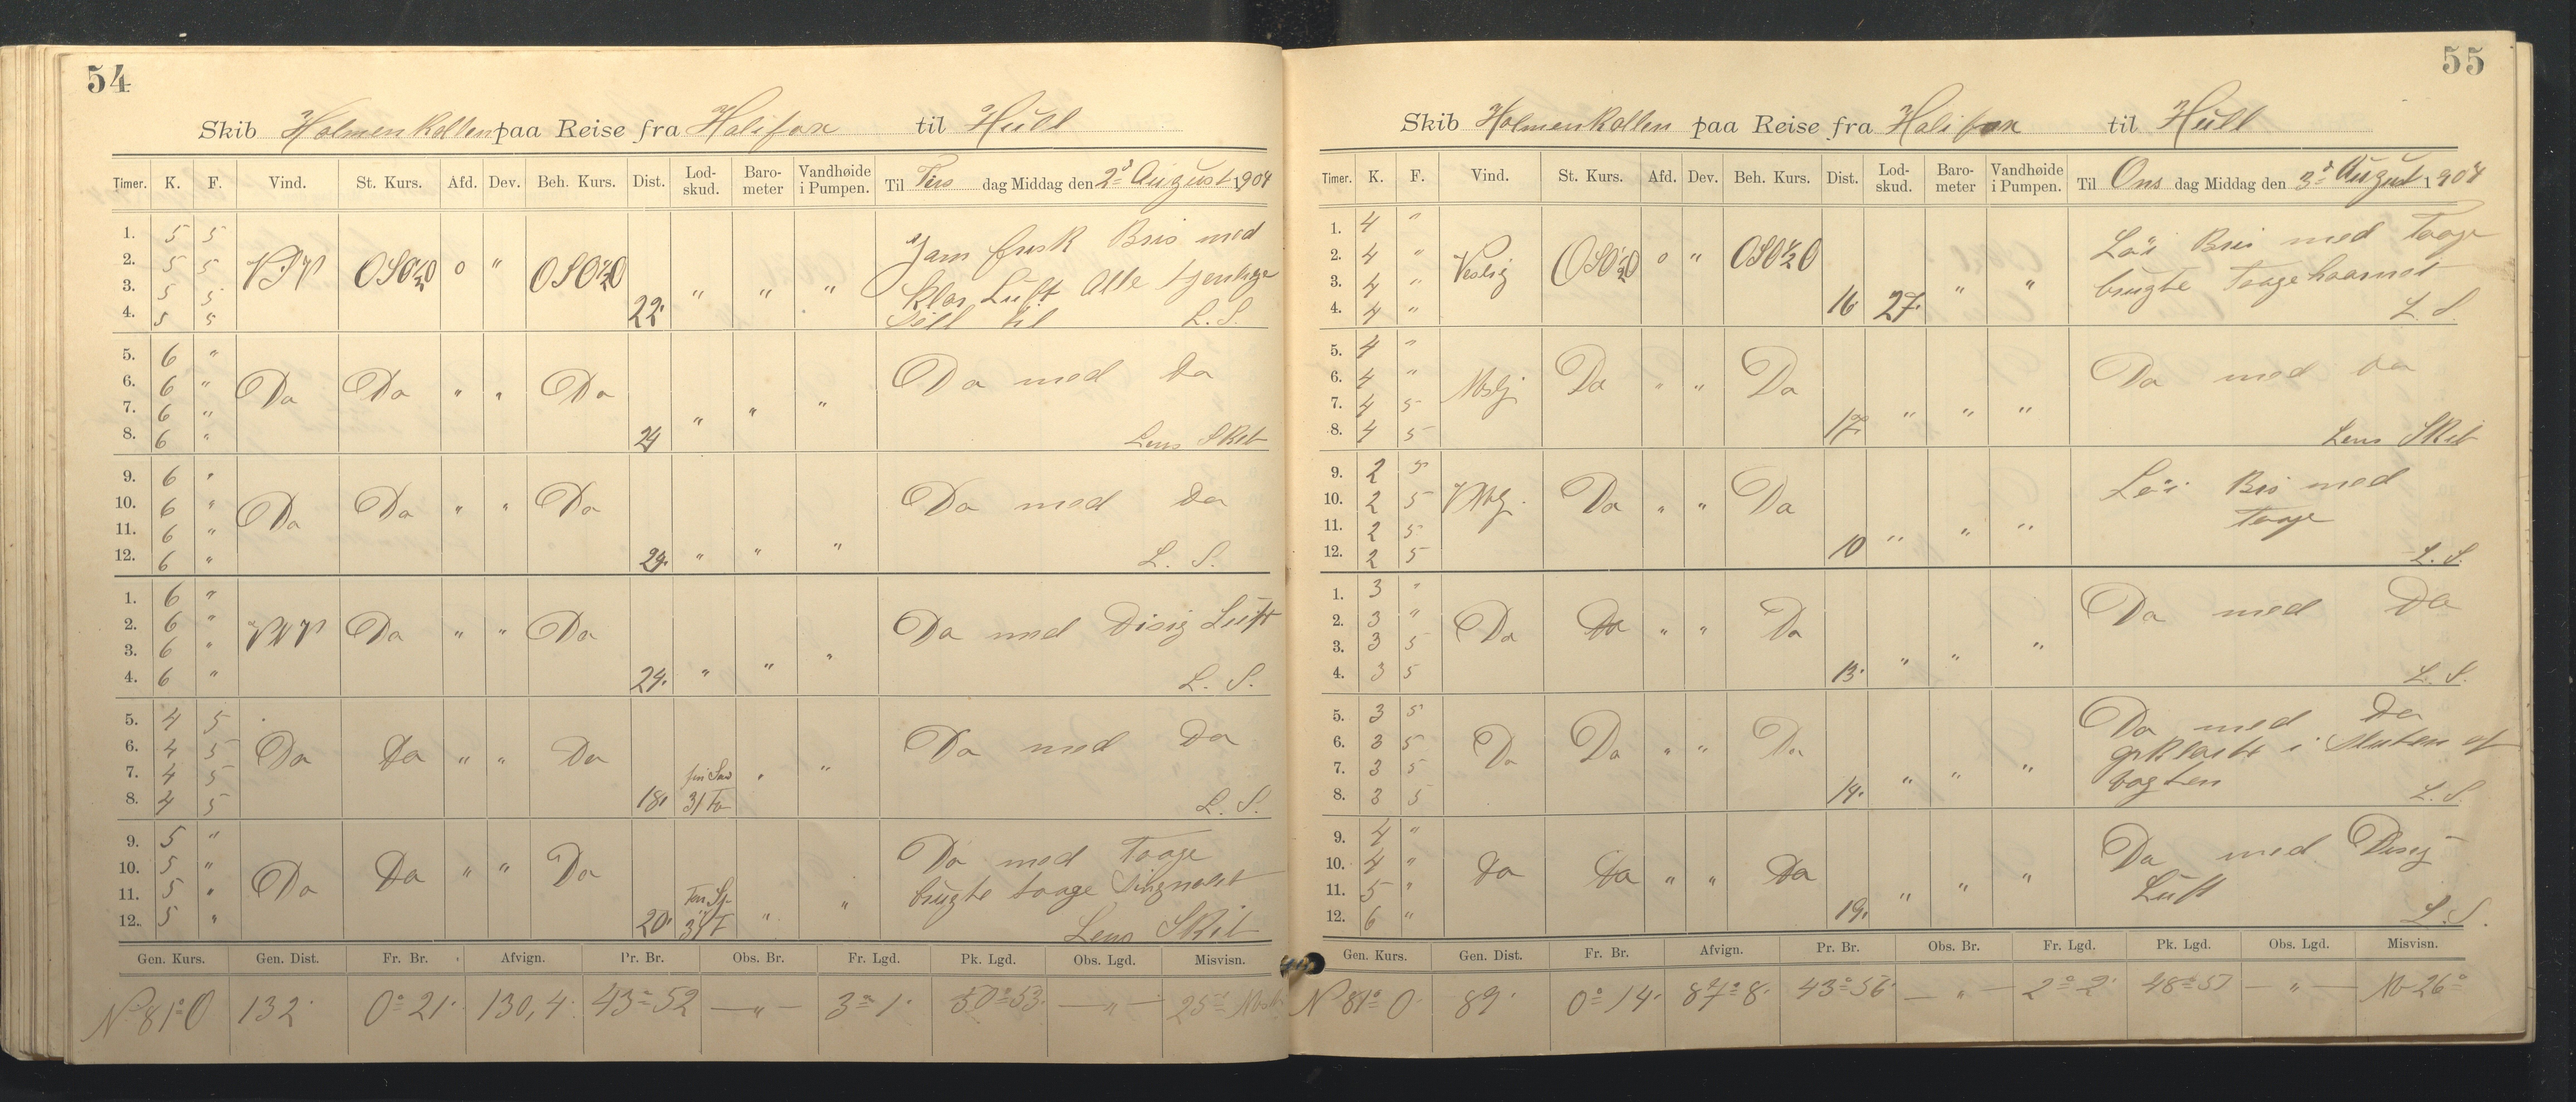 54
Skib Holmenkollen paa Reise fra Halifax til Hull
Timer. K. F. Vind. St. Kurs. Afd. Dev. Beh. Kurs. Dist. Lod-skud. Baro-meter Vandhøide i Pumpen. Til Tirs dag Middag den 2d August 1904
1. 5 5 Jam frisk Bris med
2. 5 5 VSV OSO½O 0 " OSO½O
3. 5 5 " " " Klar Luft Alle tjenlige
4. 5 5 22. Seil til L. S.
5. 6 "
6. 6 " Do Do " " Do Do med Do
7. 6 " " " "
8. 6 " 24 Lens Skib
9. 6 "
10. 6 " Do Do " " Do Do med Do
11. 6 "
12. 6 " 24. " " " L. S.
1. 6 "
2. 6 " VNV Do " " Do Do med Disig Luft
3. 6 "
4. 6 " 24. " " " L. S.
5. 4 5
6. 4 5 Do Do " " Do Do med Do
7. 4 5 " "
8. 4 5 18. 31 Fv L. S.
9. 5 " Do med Taage
10. 5 " Do Do " " Do
11. 5 " " brugte taage Singnalet
12. 5 " 20. " Lens Skib
Gen. Kurs. Gen. Dist. Fr. Br. Afvign. Pr. Br. Obs. Br. Fr. Lgd. Pk. Lgd. Obs. Lgd. Misvisn.
N 81° O 132. 0° 21. 130,4. 43° 52 — " — 3° 1. 50° 53. — " — 25°
55
Skib Holmenkollen paa Reise fra Halifax til Hull
Timer. K. F. Vind. St. Kurs. Afd. Dev. Beh. Kurs. Dist. Lod-skud. Baro-meter Vandhøide i Pumpen. Til Ons dag Middag den 3d August 1904
1. 4 " Løi Bris med Taage
2. 4 " Vestlig OSO½O 0 " OSO½O
3. 4 " " " brugte Taagehaarnet
4. 4 " 16 27. L. S.
5. 4 "
6. 4 " Do " " Do Do med Do
7. 4 5
8. 4 5 17. " " " Lens Skib
9. 2 5 Løi Bris med
10. 2 5 Do " " Do
11. 2 5 Taage
12. 2 5 10 " " " L. S.
1. 3 "
2. 3 " Do Do " " Do Do med Do
3. 3 5 "
4. 3 5 13. " " L. S.
5. 3 5 Do med Do
6. 3 5 Do Do " " Do opklarte i Slutten af
7. 3 5 " " " vagten
8. 3 5 14. L. S.
9. 4 " Do med Disig
10. 4 " Do Do " " Do Luft
11. 5 " " " "
12. 6 " 19. L. S.
Gen. Kurs. Gen. Dist. Fr. Br. Afvign. Pr. Br. Obs. Br. Fr. Lgd. Pk. Lgd. Obs. Lgd. Misvisn.
N 81° O 89. 0° 14. 87°8. 43° 56. — " — 2° 2. 48° 51 — " — 26°